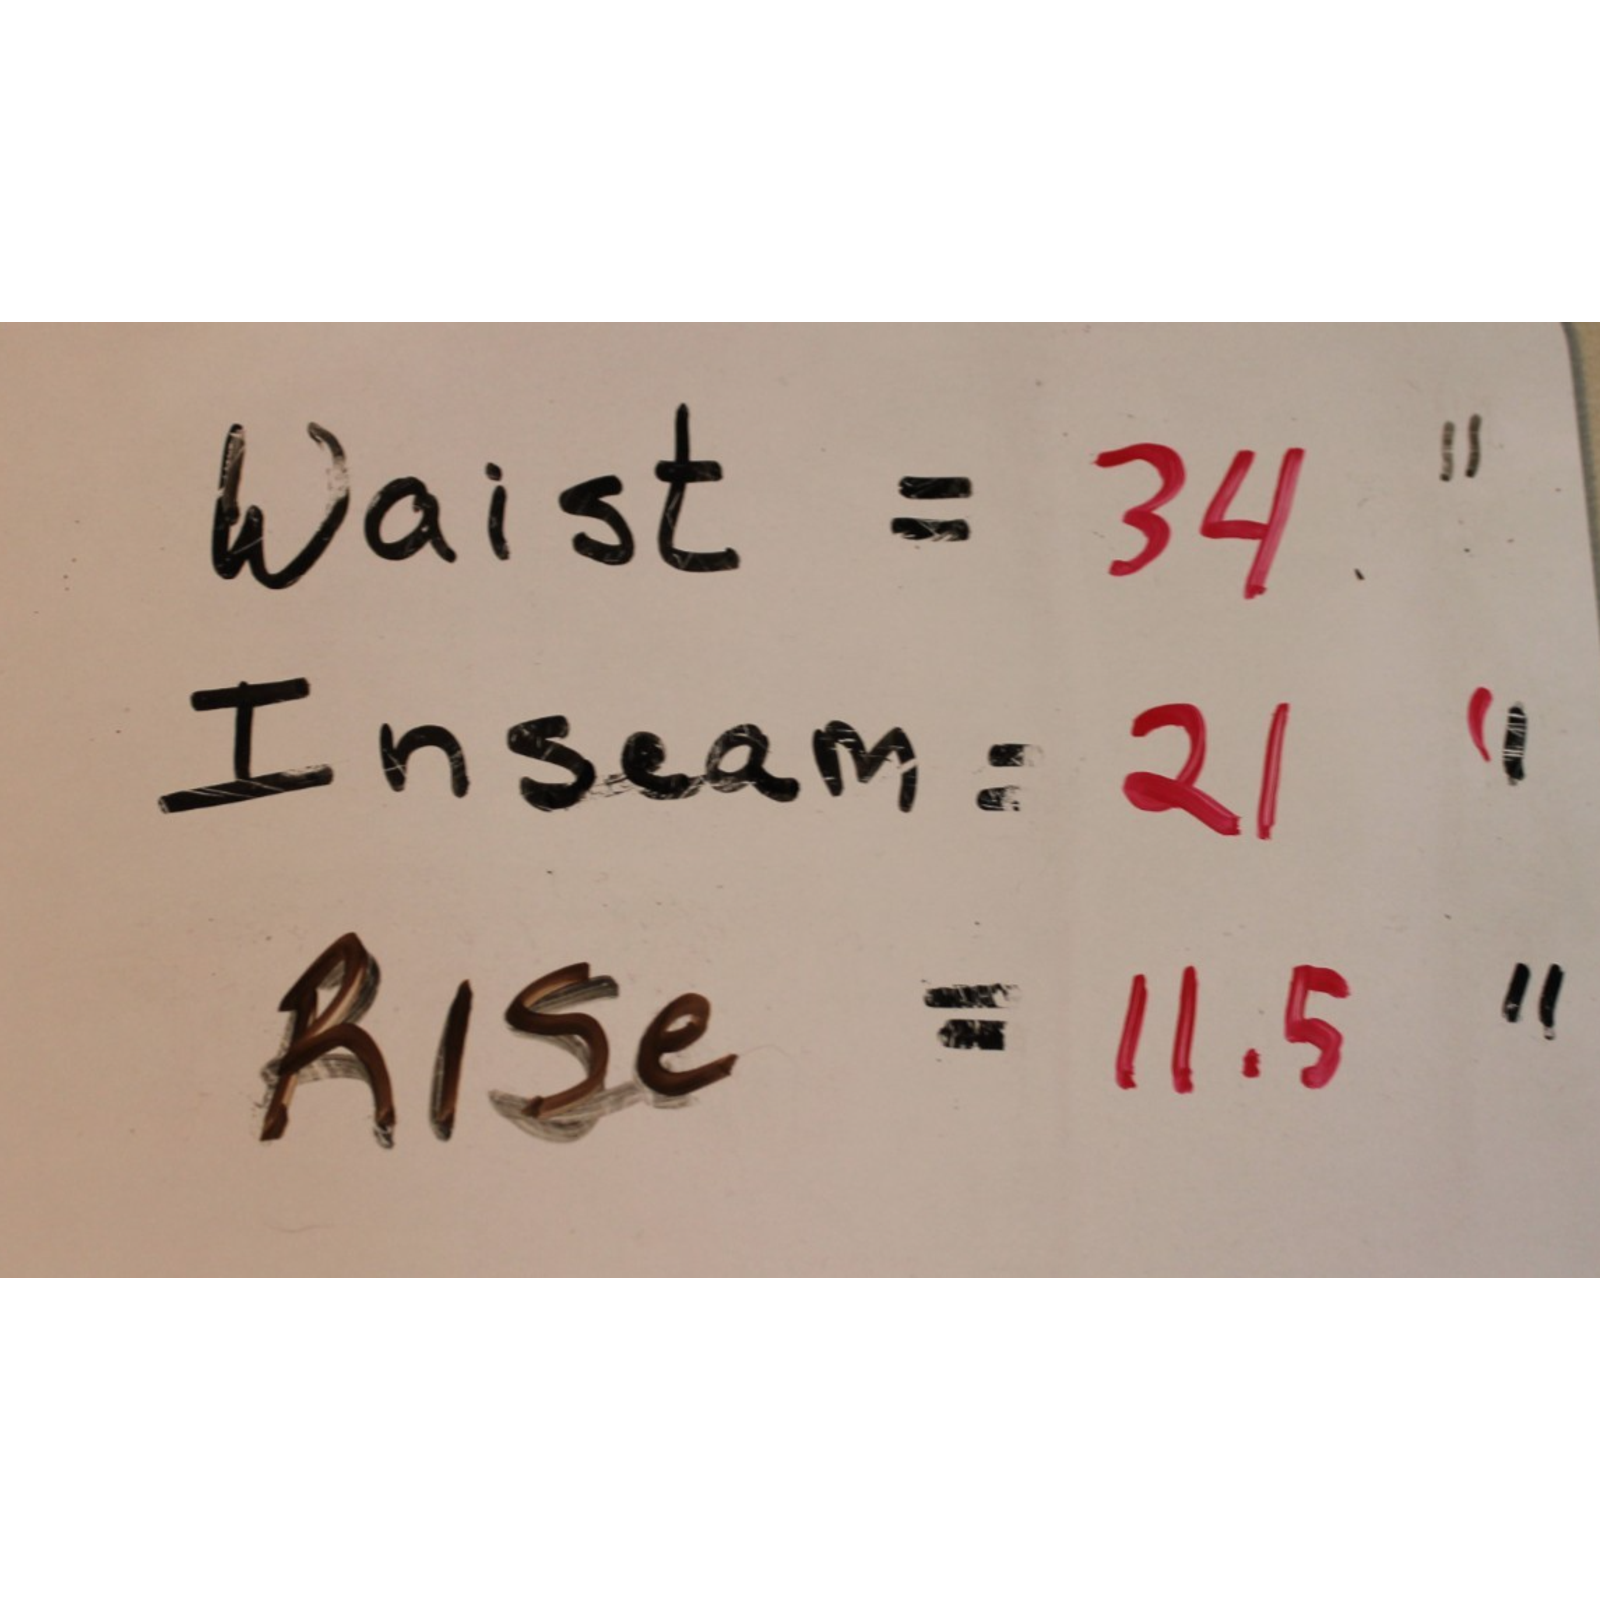 Waist = 34 "
Inseam = 21 "
RISe = 11.5 "